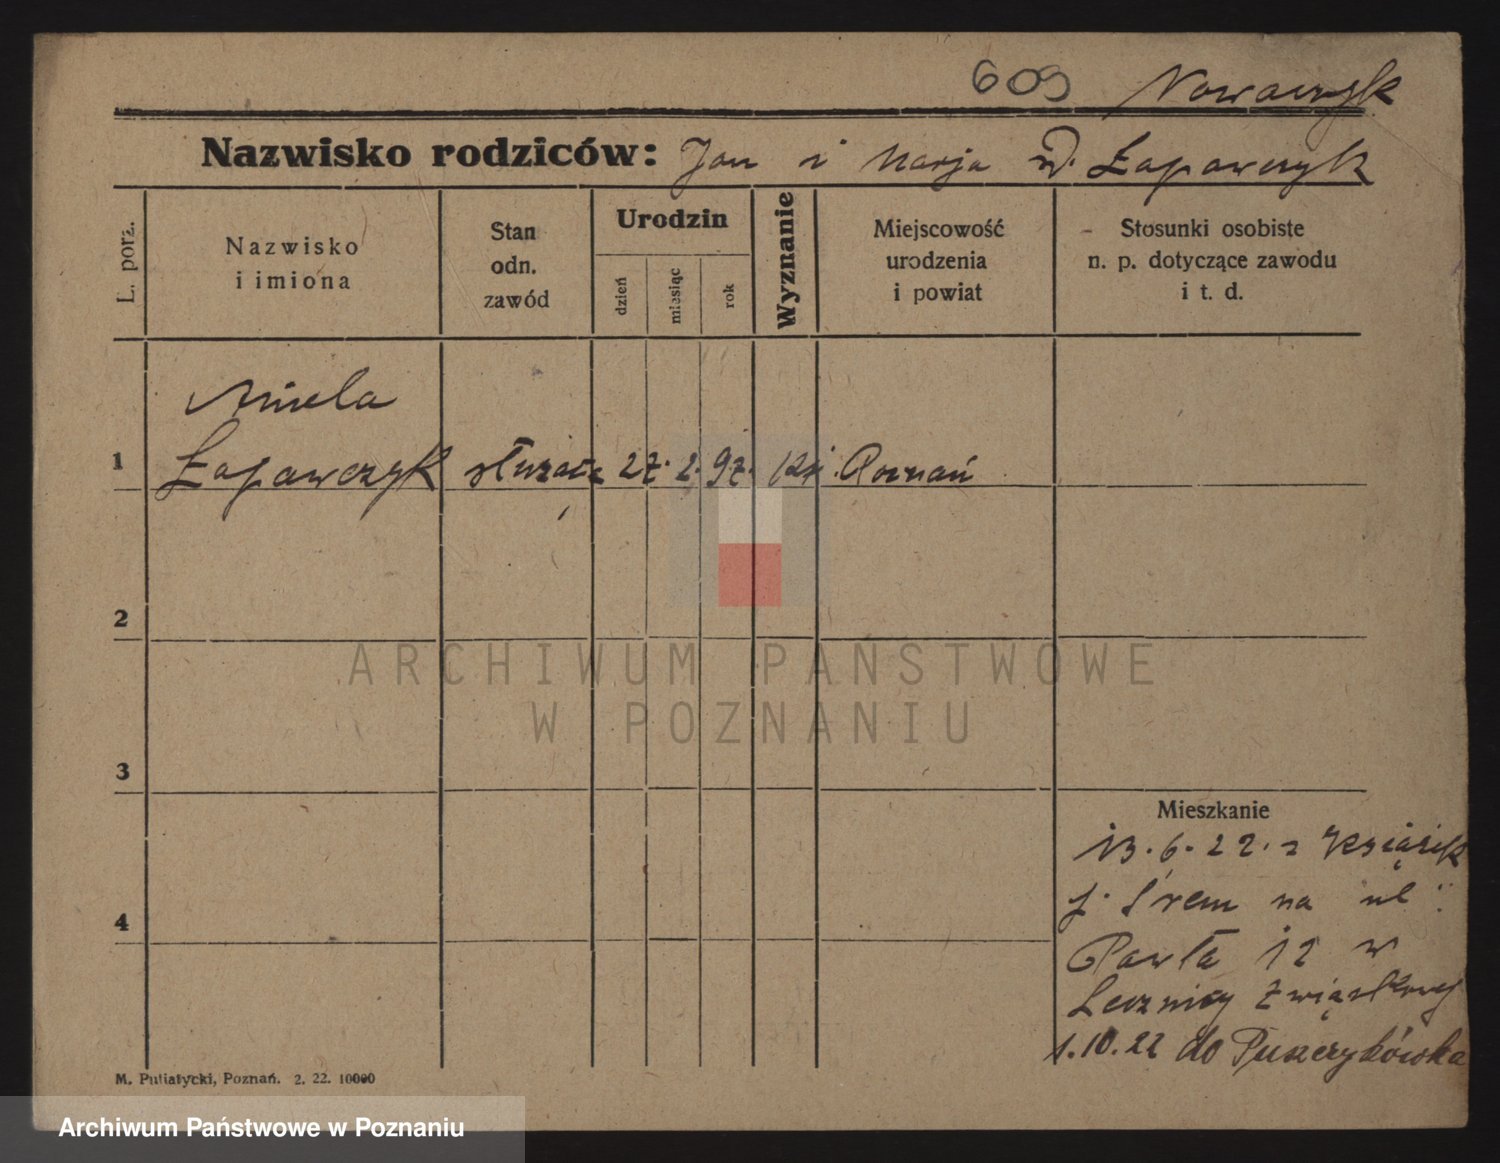 609 Nowaczyk
Nazwisko rodziców: Jan i Marja Łapawczyk
L. porz.
Nazwisko
i imiona
Stan
odn.
zawód
Urodzin
dzień
miesiąc
rok
Wyznanie
Miejscowość
urodzenia
i powiat
Stosunki osobiste
n. p. dotyczące zawodu
i t. d.
Aniela
1 Łapawczyk służąca 27. 2. 97. kt. Poznań
2
ARCHIWUM PAŃSTWOWE
W POZNANIU
3
Mieszkanie
13. 6. 22. z Książek
p. Śrem na ul:
4
Pawła 12 w
Lecznicy Związkowej
1.10.22 do Puszczykówka
M. Putiatycki, Poznań. 2. 22. 10000
Archiwum Państwowe w Poznaniu